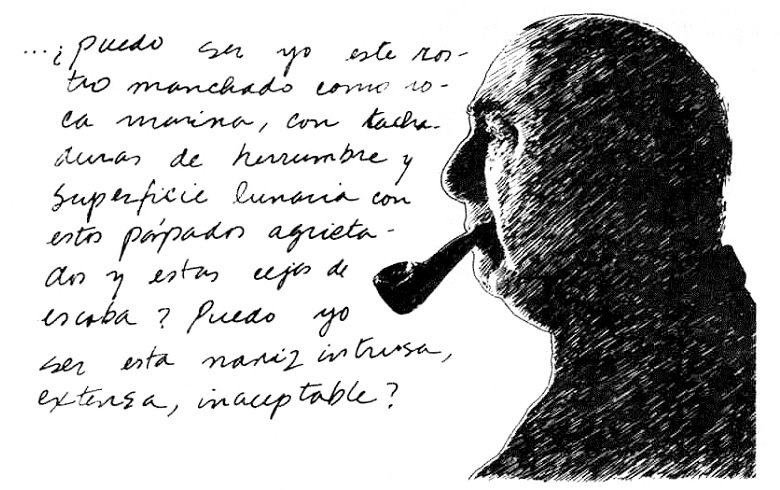 ...¿Puedo ser yo este ros-
tro manchado como ro-
ca marina, con tacha-
duras de herrumbre y
superficie lunaria con
estos párpados agrieta-
dos y estas cejas de
escoba? Puedo yo
ser esta nariz intrusa,
extensa, inaceptable?